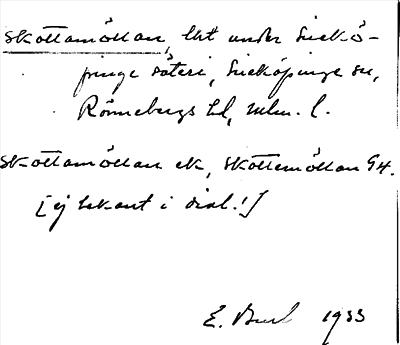 Skottamöllan, lht under Snekö-
pinge säteri, Sneköpinge sn,
Rönnebergs hd, Mlm. l.
Skottamöllan ek, Skottemöllan G4.
[ej bekant i dial.!]
E. 1933